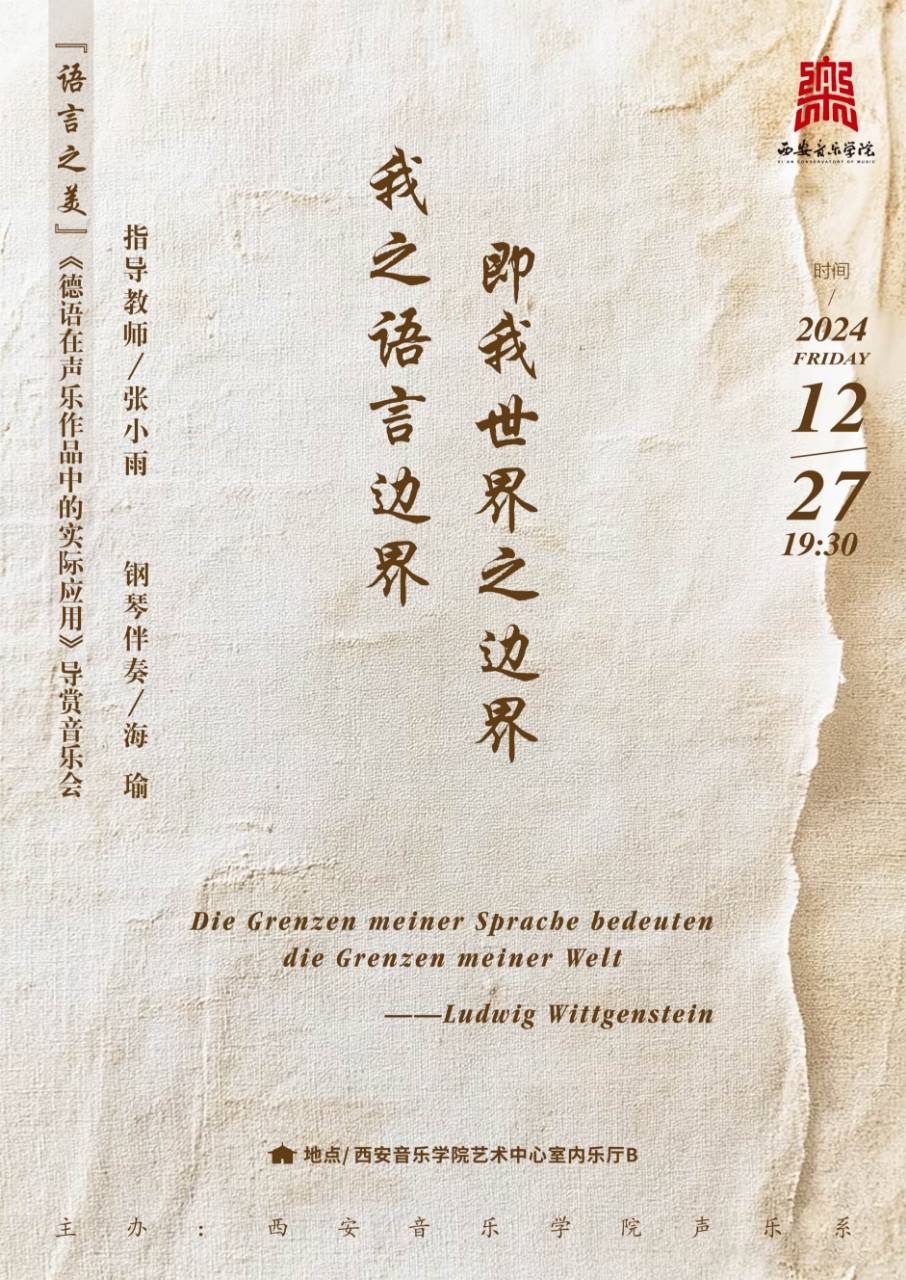 『语言之美』《德语在声乐作品中的实际应用》导赏音乐会
指导教师/张小雨 钢琴伴奏/海 瑜
我之语言边界
即我世界之边界
西安音乐学院
XI'AN CONSERVATORY OF MUSIC
时间
/
2024
FRIDAY
12
27
19:30
Die Grenzen meiner Sprache bedeuten
die Grenzen meiner Welt
——Ludwig Wittgenstein
地点/西安音乐学院艺术中心室内乐厅B
主办：西安音乐学院声乐系